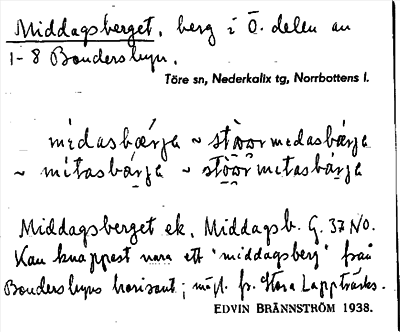 Middagsberget, berg i Ö. delen av
1-8 Bondersbyn.
Töre sn, Nederkalix tg, Norrbottens l.
midasbærja ~ stòoormedasbærja
~ mítasbárja ~ stòoormitasbárja
Middagsberget ek. Middagsb. G. 37 NO.
Kan knappast vara ett "middagsberg" från
Bondersbyns horisont; möjl. fr. Stora Lappträsks.
EDVIN BRÄNNSTRÖM 1938.